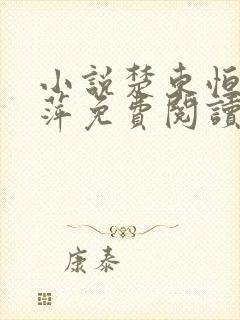 小說楚東恒
萍免費閱讀
康泰